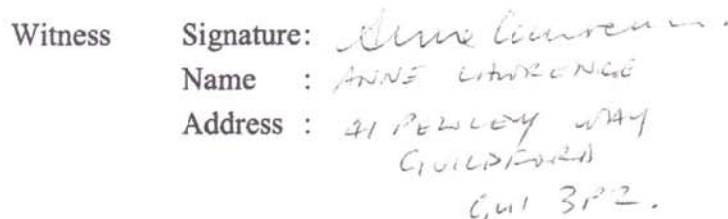 Witness Signature: Anne Lawrence
Name : ANNE LAWRENCE
Address : 41 PEWLEY WAY
GUILDFORD
GU1 3PZ.